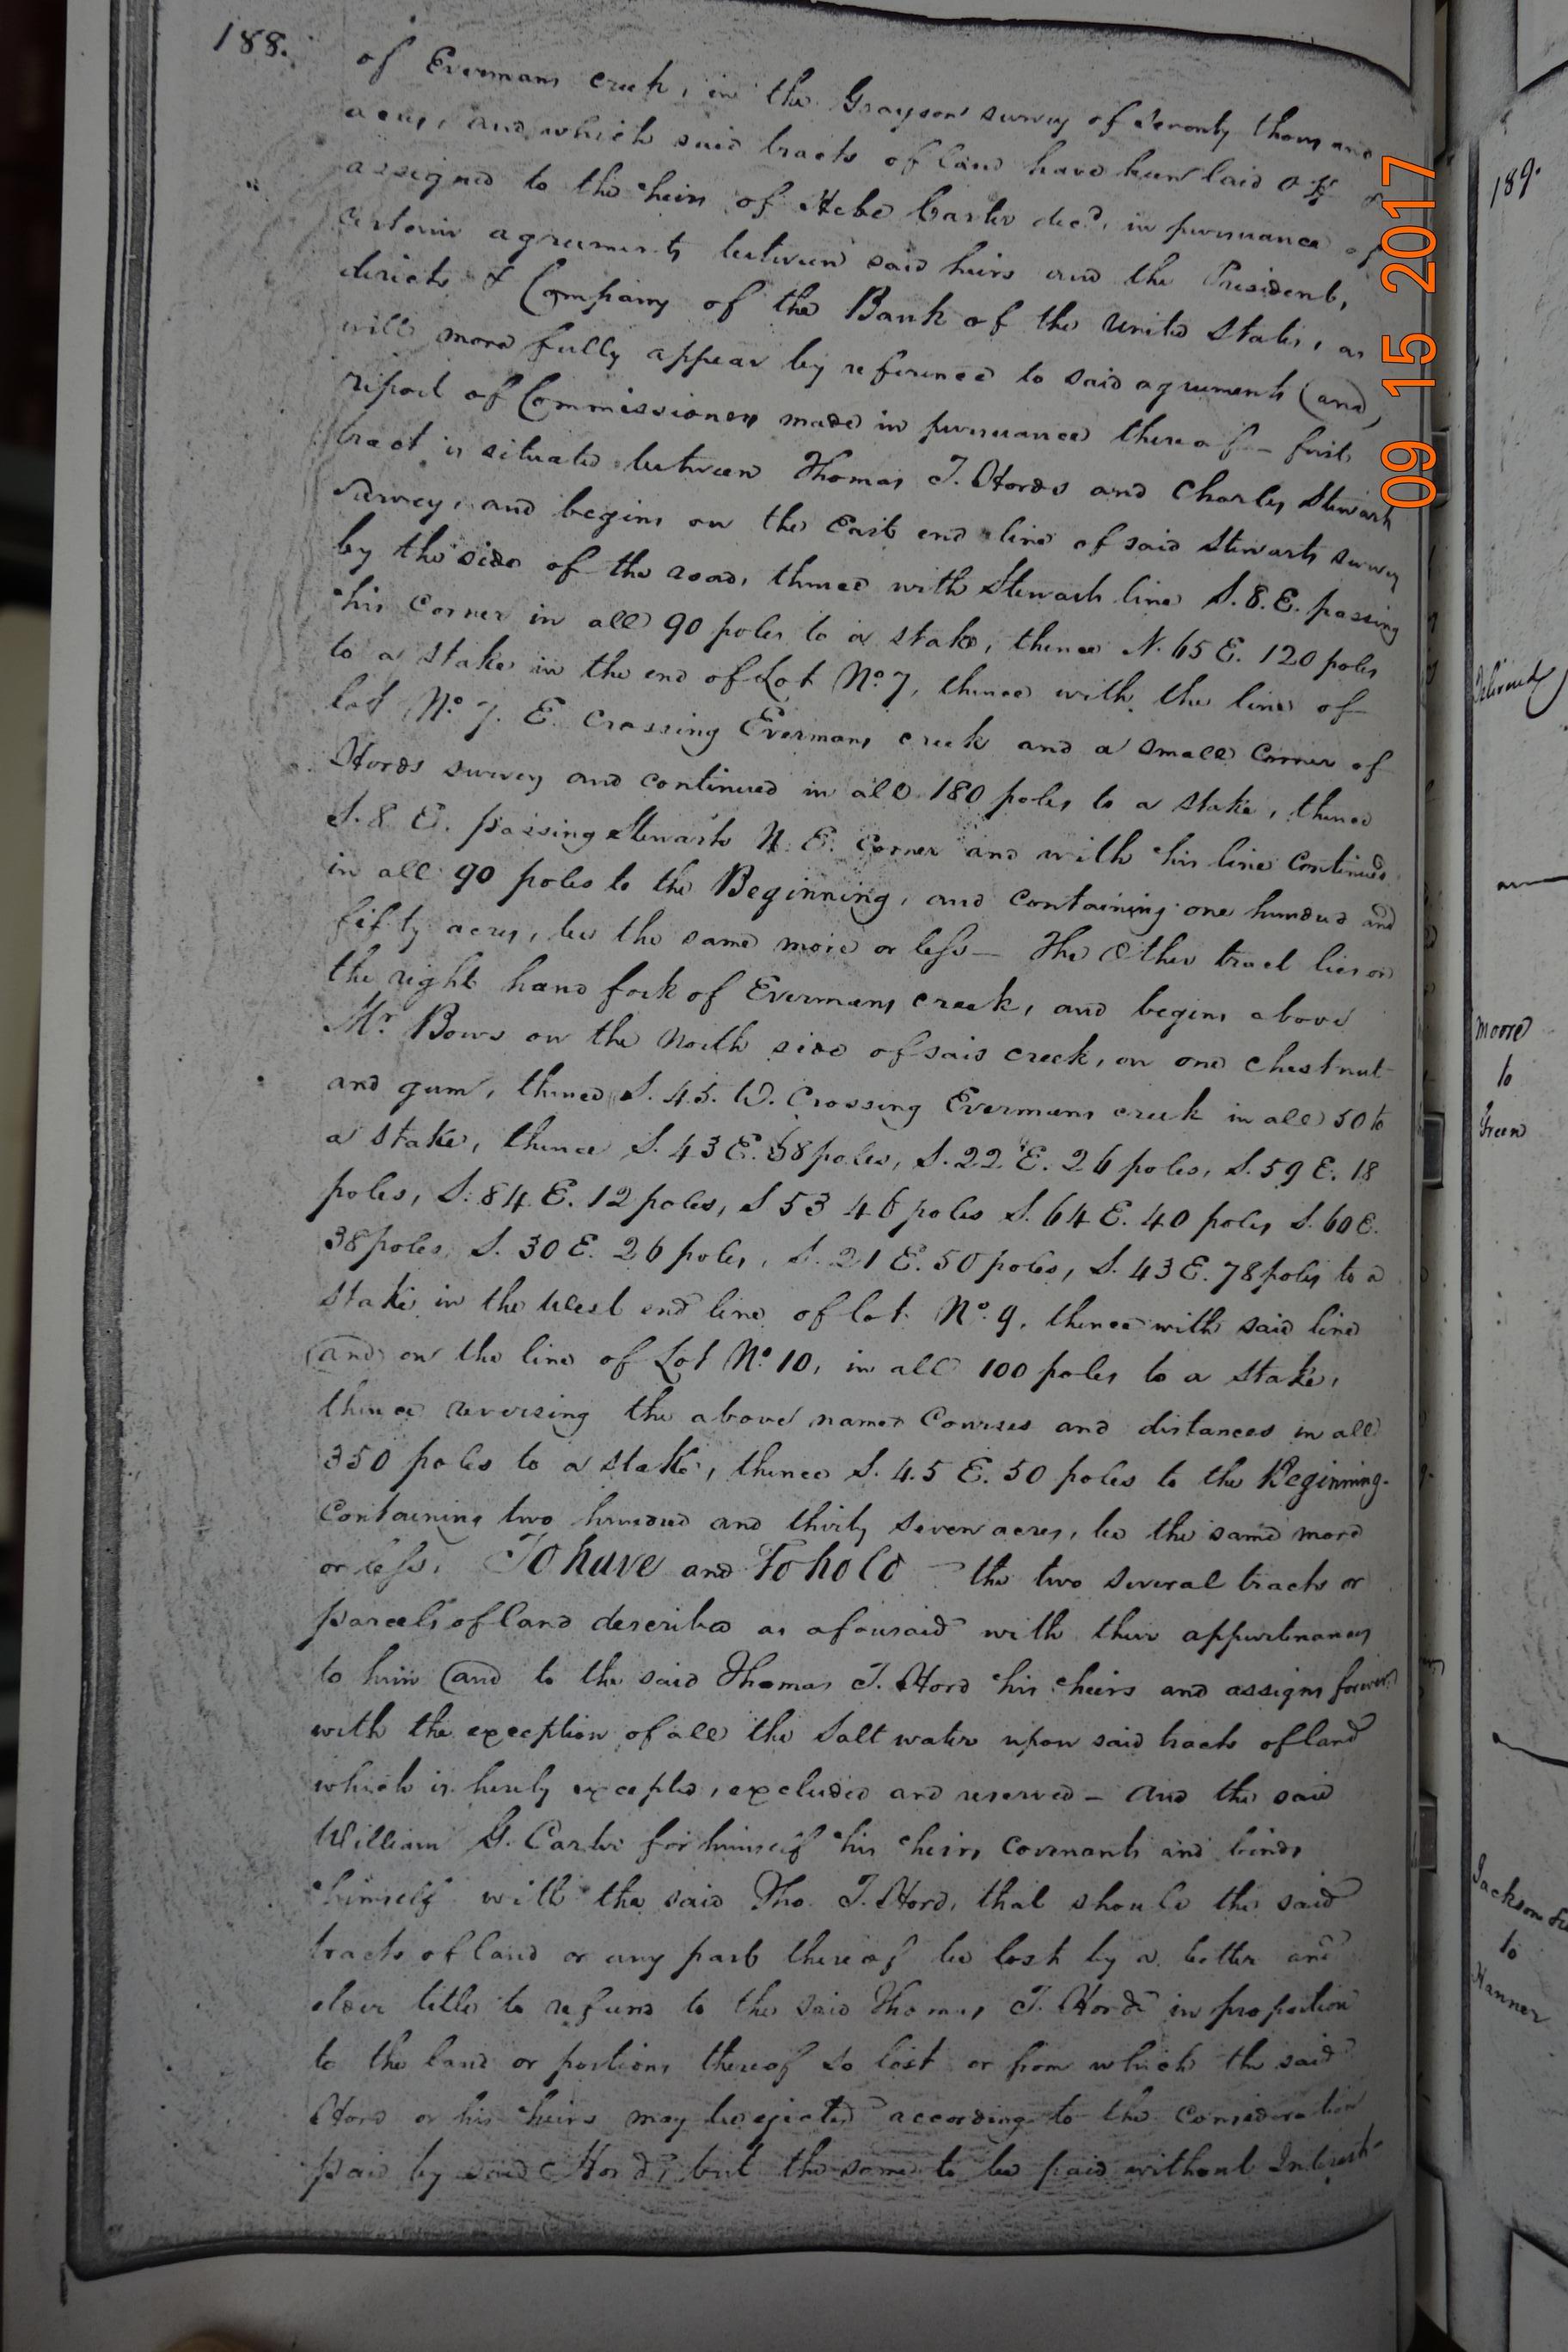 188.
of Evermans creek, in the Grayson survey of Seventy thousand
acres, and which said tracts of land have been laid off &
assigned to the heirs of Hebe Carter decd, in pursuance of
certain agreements between said heirs and the President,
directs & Company of the Bank of the United States, as
will more fully appear by reference to said agreements (and)
report of Commissioners made in pursuance thereof – first
tract is situated between Thomas T. Hords and Charles Stewart
survey, and begins on the East end line of said Stewarts survey
by the side of the road, thence with Stewarts line S. 8. E. passing
his corner in all 90 poles to a stake, thence N. 65 E. 120 poles
to a stake in the end of Lot No. 7, thence with the line of
lot No. 7. E. Crossing Evermans creek and a small corner of
Hords survey and continued in all 180 poles to a stake, thence
S. 8 E. passing Stewarts N. E. Corner and with his line continued
in all 90 poles to the Beginning, and containing one hundred and
fifty acres, be the same more or less – The Other tract lies on
the right hand fork of Evermans creek, and begins above
Mr. Bows on the North side of said creek, on one chestnut
and gum, thence S. 45. W. Crossing Evermans creek in all 50 to
a stake, thence S. 43 E. 58 poles, S. 22 E. 26 poles, S. 59 E. 18
poles, S. 84. E. 12 poles, S 53 46 poles S. 64 E. 40 poles S. 60 E.
38 poles, S. 30 E. 26 poles, S. 21 E. 50 poles, S. 43 E. 78 poles to a
stake in the West end line of lot No. 9, thence with said line
(and) on the line of Lot No. 10, in all 100 poles to a stake,
thence reversing the above named Courses and distances in all
350 poles to a stake, thence S. 45 E. 50 poles to the Beginning.
Containing two hundred and thirty seven acres, be the same more
or less. To have and To hold – the two several tracts or
parcels of land described as aforesaid with their appurtenances
to him (and to the said Thomas T. Hord his heirs and assigns forever
with the exception of all the Salt water upon said tracts of land
which is hereby excepted, excluded and reserved – and the said
William G. Carter for himself his heirs covenants and binds
himself with the said Tho. T. Hord, that should the said
tracts of land or any part thereof be lost by a better and
elder title to refund to the said Thomas T. Hord in proportion
to the land or portions thereof so lost or from which the said
Hord or his heirs may be ejected according to the consideration
paid by said Hord, but the same to be paid without Interest
09 15 2017
189.
Delivered
Moore
to
Green
Jackson
to
Hanner